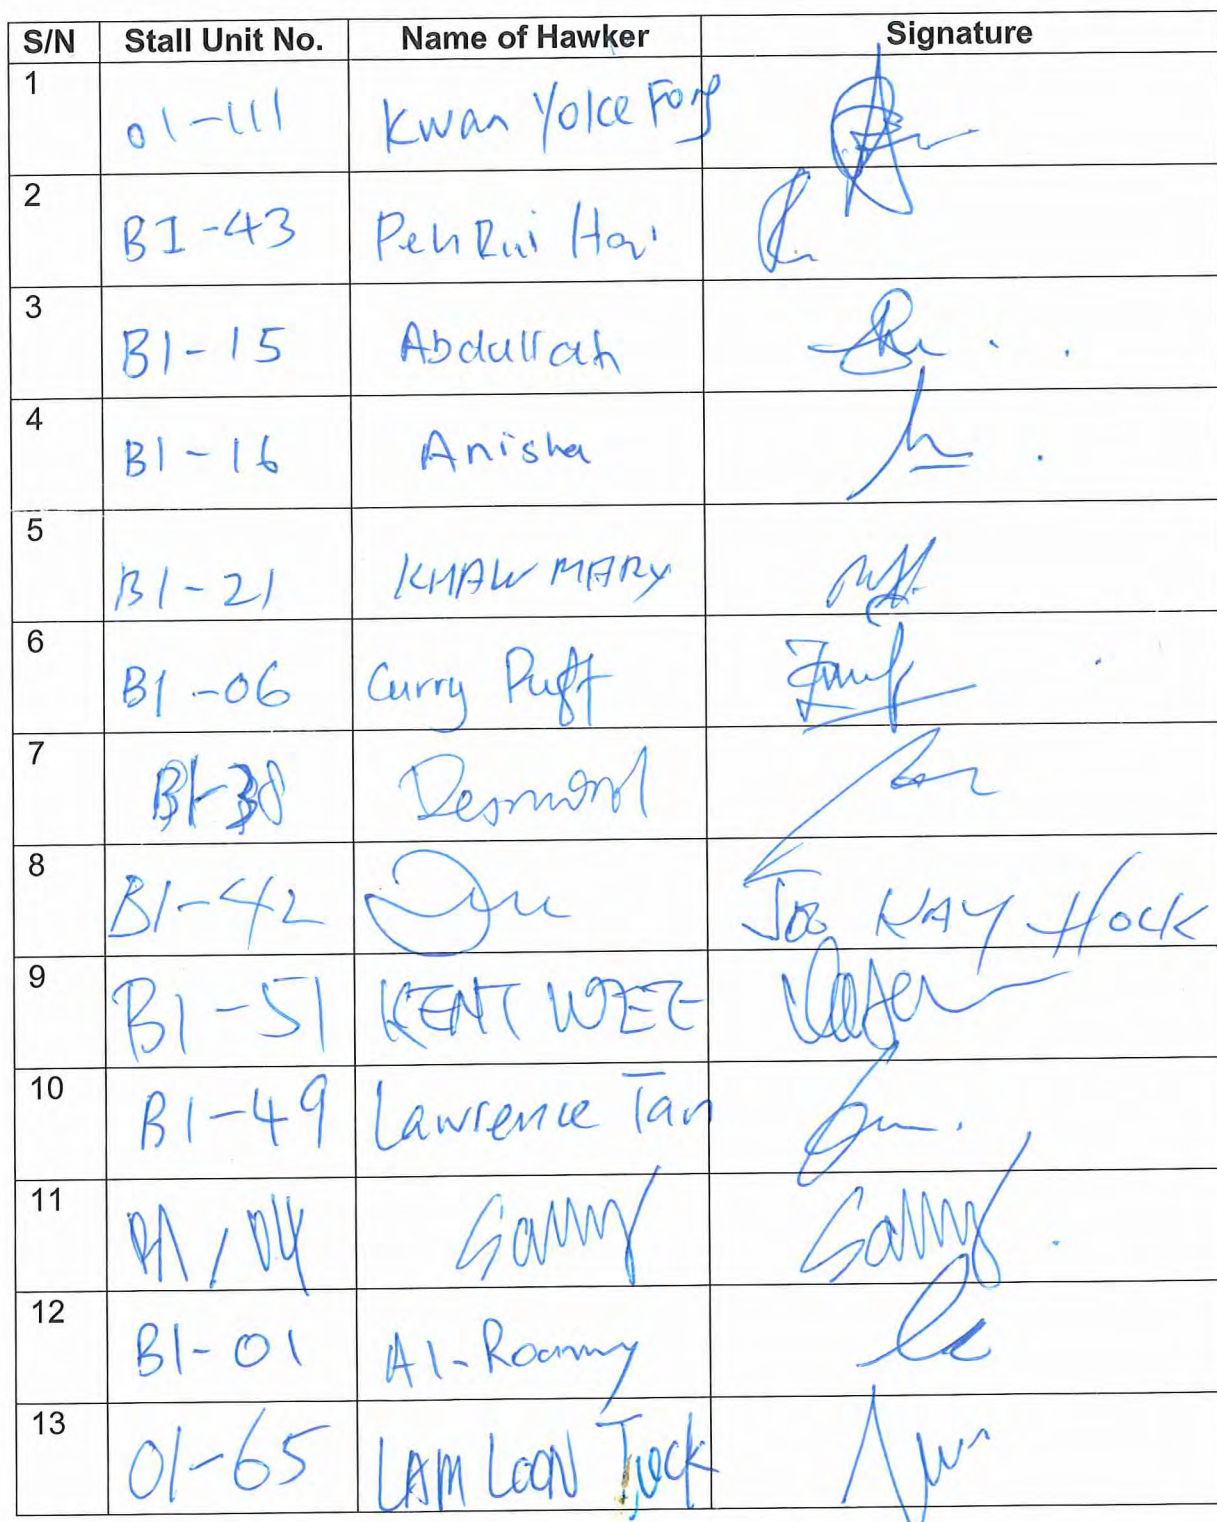 S/N Stall Unit No. Name of Hawker Signature
1 01-111 Kwan Yoke Fong
2 B1-43 Peh Rui Hai
3 B1-15 Abdullah
4 B1-16 Anisha
5 B1-21 KHAW MARY
6 B1-06 Curry Puff
7 B1-38 Desmond
8 B1-42 JOO KAY HOCK
9 B1-51 KENT WEE
10 B1-49 Lawrence Tan
11
12 B1-01 Al-Roamy
13 01-65 LAM LOON